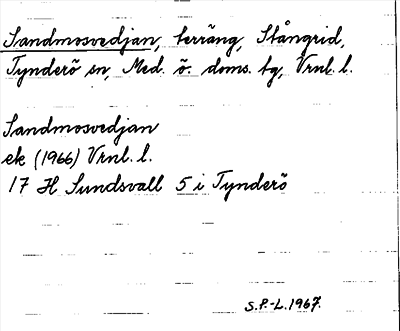 Sandmosvedjan, terräng, Stångrid,
Tynderö sn, Med. ö. doms. tg, Vrnl. l.
Sandmosvedjan
ek (1966) Vrnl. l.
17 H Sundsvall 5 i Tynderö
S.P.-L. 1967.